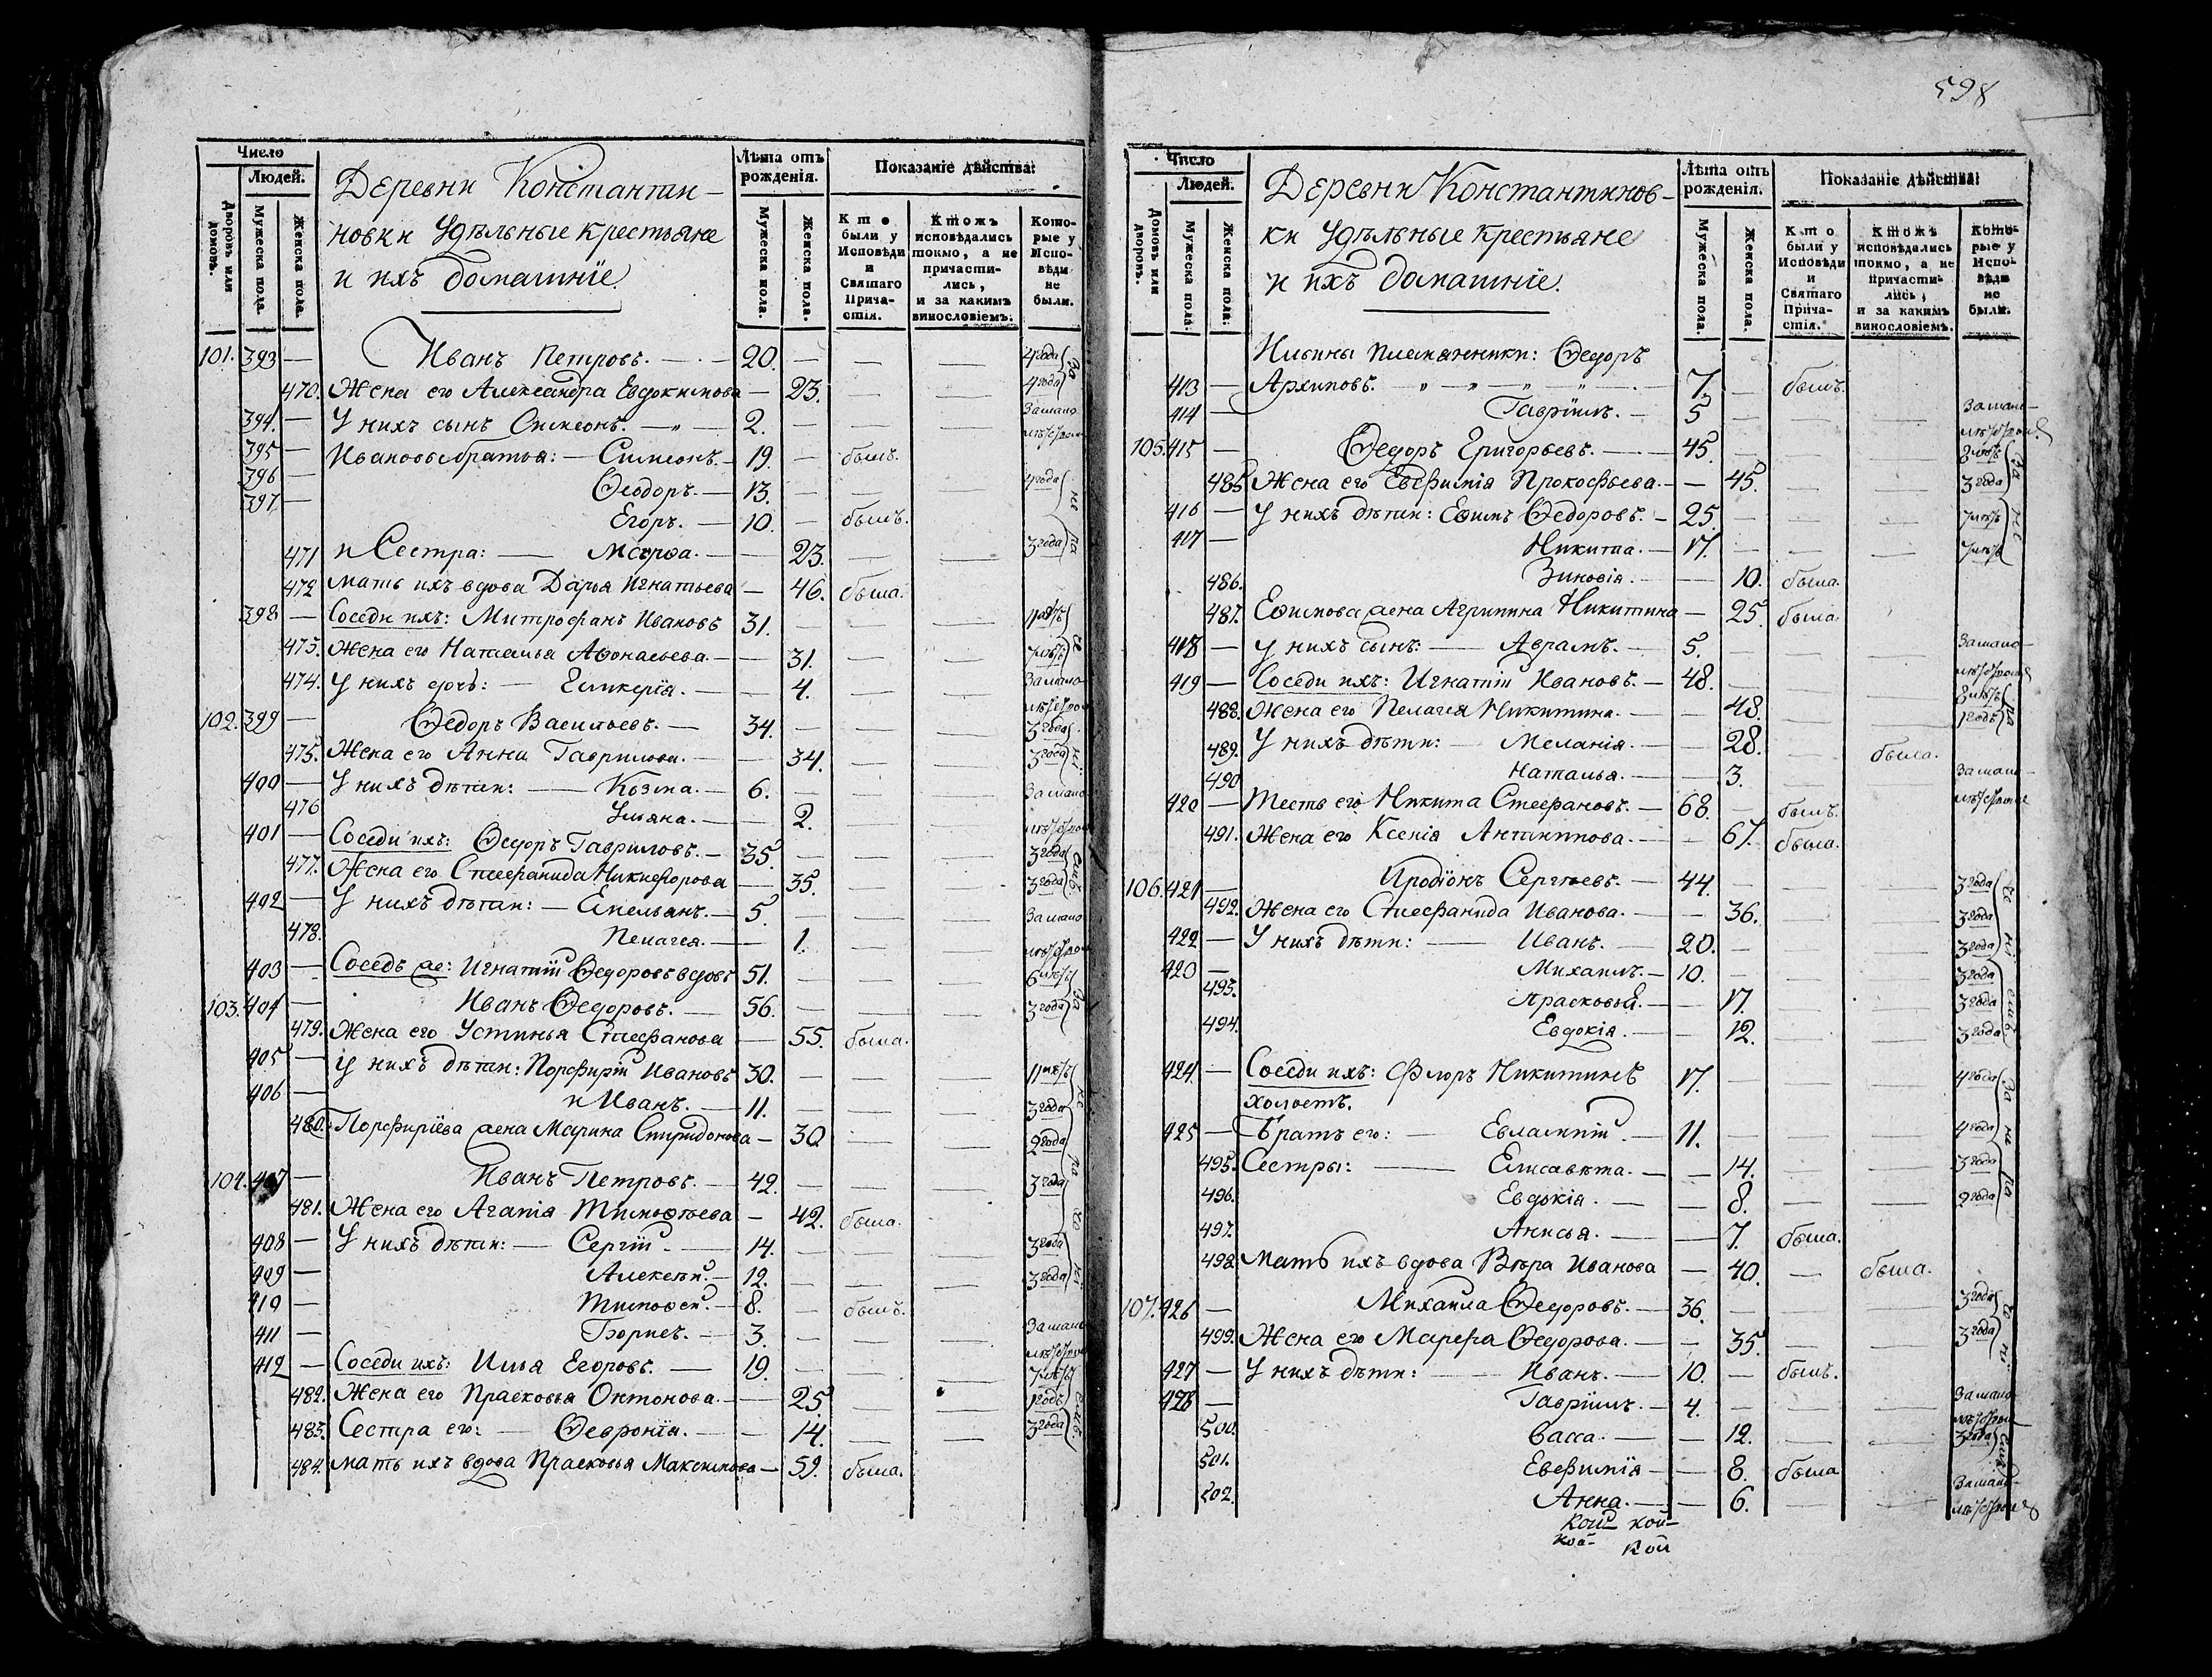 Число
Людей.
Дворовъ или домовъ.
Мужеска пола.
Женска пола.
Деревни Константи-
новки Удѣльные крестьяне
и ихъ домашніе
Лѣта отъ рожденія.
Мужеска пола.
Женска пола.
Показаніе дѣйства:
Кто были у Исповѣди и Святаго Прича-стія.
Ктожъ исповѣдались токмо, а не причасти-лись, и за какимъ винословіемъ.
Кото-рые у Испо-вѣди не были.
101. 393 — Иванъ Петровъ. — 20. — — — 4 года
470. Жена его Александра Евдокимова — 23. — — 4 года
394. — У нихъ сынъ Симеонъ. — 2. — — — За мало-
395 — Ивановы братья: — Симеонъ. — 19. — былъ.
396 — Ѳеодоръ. — 13. — — — 4 года
397 — Егоръ. — 10. — былъ.
471 и Сестра: — Марѳа. — — 23. — — 3 года
472 мать ихъ вдова Дарья Игнатьева — 46. была.
398 — Соседи ихъ: Митрофанъ Ивановъ 31. — — —
473. Жена его Наталья Аѳонасьева. — — 31. — — 7 лѣтъ
474. У нихъ дочь: — Гликерія. — — 4. — — За мало
102. 399 — Ѳедоръ Васильевъ. — 34. — — — 3 года
475. Жена его Анна Гаврилова. — — 34. — — 3 года
400 — У нихъ дѣти: — Козма. — 6. — — — За мало
476 Ульяна. — — 2. — —
401 — Соседи ихъ: Ѳедоръ Гавриловъ. — 35. — — — 3 года
477. Жена его Стефанида Никифорова — 35. — — 3 года
402 — У нихъ дѣти: — Емельянъ. — 5. — — — За мало
478. Пелагея. — — 1. — —
403 — Соседъ же: Игнатій Ѳедоровъ вдовъ 51. — — — 6 лѣтъ
103. 404 — Иванъ Ѳедоровъ. — 56. — — — 3 года
479. Жена его Устинья Стефанова — 55. была.
405 — У нихъ дѣти: Порфирій Ивановъ 30. — — — 11 лѣтъ
406 — и Иванъ. — 11. — — — 3 года
480. Порфиріева жена Марина Спиридонова — 30 — — 2 года
104. 407 — Иванъ Петровъ. — 42. — — — 3 года
481. Жена его Агапія Тимоѳеева — 42. была.
408 — У нихъ дѣти: — Сергій. — 14. — — — 3 года
409 — Алексѣй. — 12. — — — 3 года
410 — Тимоѳей. — 8. — былъ.
411 — Борисъ. — 3. — — — За мало
412 — Соседи ихъ: Илья Егоровъ. — 19. — — — 7 лѣтъ
482. Жена его Прасковья Онтонова. — — 25. — — 1 годъ
483. Сестра его: — Ѳевронія. — — 14. — — 3 года
484. мать ихъ вдова Прасковья Максимова — 59. была.
598
Число
Людей.
Домовъ или дворовъ.
Мужеска пола.
Женска пола.
Деревни Константинов-
ки Удѣльные крестьяне
и ихъ домашніе.
Лѣта отъ рожденія.
Мужеска пола.
Женска пола.
Показаніе дѣйства:
Кто были у Исповѣди и Святаго Прича-стія.
Ктожъ исповѣдались токмо, а не причасти-лись, и за какимъ винословіемъ.
Кото-рые у Испо-вѣди не были.
Ильины племянники: Ѳедоръ
413 — Архиповъ. — 7. — былъ.
414 — Гавріилъ. — 5 — — — За мало-
105. 415 — Ѳедоръ Григорьевъ. — 45. — — —
485 Жена его Евфимія Прокофьева. — — 45. — — 3 года
416 — У нихъ дѣти: Еѳимъ Ѳедоровъ. — 25. — — — 7 лѣтъ
417 — Никита. — 17. — — — 7 лѣтъ
486. Зиновія. — — 10. была.
487. Еѳимова жена Агрипина Никитина — 25. была.
418 — У нихъ сынъ: — Аврамъ. — 5. — — — За мало-
419 — Соседи ихъ: Игнатій Ивановъ. — 48. — — —
488. Жена его Пелагея Никитина. — — 48. — — 1 годъ
489. У нихъ дѣти: — Меланія. — — 28. — была.
490 Наталья. — — 3. — — За мало-
420 — Тесть его Никита Стефановъ. — 68. — былъ.
491. Жена его Ксенія Антипова. — — 67. была.
106. 421 — Иродіонъ Сергѣевъ. — 44. — — — 3 года
492. Жена его Стефанида Иванова. — — 36. — — 3 года
422 — У нихъ дѣти: — Иванъ. — 20. — — — 3 года
420 — Михаилъ. — 10. — — — 3 года
493. Прасковья. — — 17. — — 3 года
494. Евдокія. — — 12. — — 3 года
424. — Соседи ихъ: Флоръ Никитинъ 17. — — — 4 года
холостъ.
425 — Братъ его: — Евлампій. — 11. — — — 4 года
495. Сестры: — Елисавѣта. — — 14. — — 3 года
496. Евдокія. — — 8. — — 2 года
497. Анисья. — — 7. была.
498. Мать ихъ вдова Вѣра Иванова — 40. — была.
107. 426 — Михаила Ѳедоровъ. — 36. — — — 3 года
499. Жена его Марфа Ѳедорова. — — 35. — — 3 года
427 — У нихъ дѣти: — Иванъ. — 10. — былъ.
428 — Гавріилъ. — 4. — — — За мало-
500. Васса. — — 12. — — 3 года
501. Евфимія — — 8. была
502. Анна. — — 6. — — За мало-
кой- кой-
кой- кой